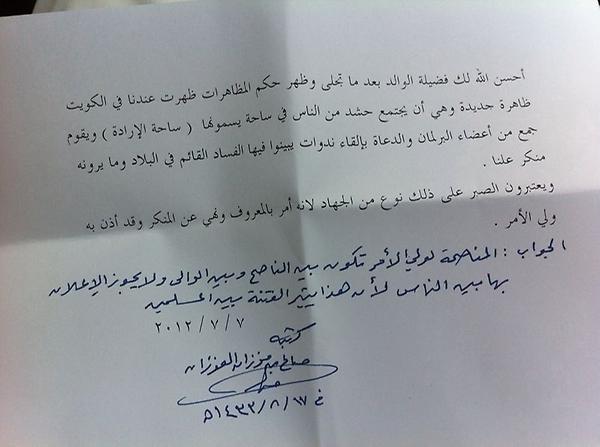 أحسن الله لك فضيلة الوالد بعد ما تجلى وظهر حكم المظاهرات ظهرت عندنا في الكويت
ظاهرة جديدة وهي أن يجتمع حشد من الناس في ساحة يسمونها ( ساحة الإرادة ) ويقوم
جمع من أعضاء البرلمان والدعاة بإلقاء ندوات يبينوا فيها الفساد القائم في البلاد وما يرونه
منكر علنا .
ويعتبرون الصبر على ذلك نوع من الجهاد لانه أمر بالمعروف ونهي عن المنكر وقد أذن به
ولي الأمر .
الجواب : المناصحة لولي الأمر تكون بين الناصح وبين الوالي ولا يجوز الإعلان
بها بين الناس لأن هذا يثير الفتنة بين المسلمين
٢٠١٢/٧/٧
كتبه
صالح بن فوزان الفوزان
في ١٤٣٣/٨/١٧هـ